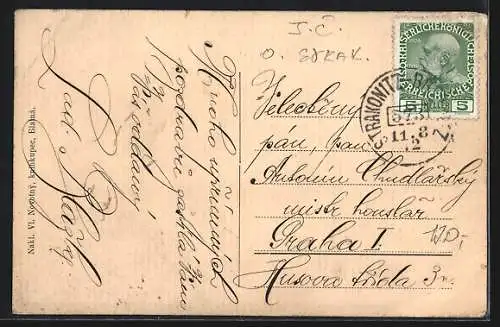 J.Č.
O. STRAK.
Mnoho upřímných
pozdravů zasílá Vám
Váš oddaný
Lad.
Nakl. Vl. Novotný, knihkupec, Blatná.
KAISERLICHE KÖNIGLICHE
ÖSTERREICHISCHE
5 5
STRAKONITZ
11.8
12
Velectěný
pán, pan
Antonín Chudlářský
mistr houslař
Praha I.
Husova třída 3
110,-